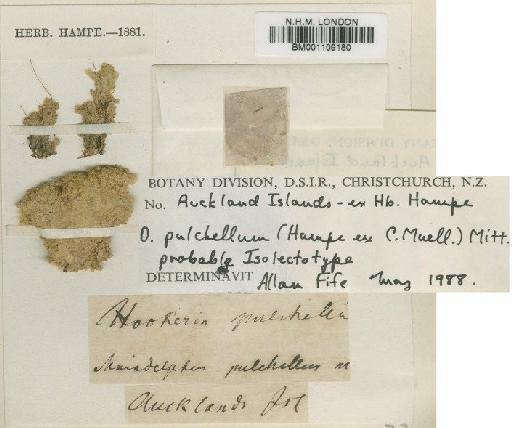 HERB. HAMPE.—1881.
N.H.M. LONDON
BM001106180
BOTANY DIVISION, D.S.I.R., CHRISTCHURCH, N.Z.
No. Auckland Islands - ex Hb. Hampe
O. pulchellum (Hampe ex C. Muell.) Mitt.
probable Isolectotype
DETERMINAVIT Allan Fife May 1988.
Hookeria pulchella
pulchellus
Aucklands Isl